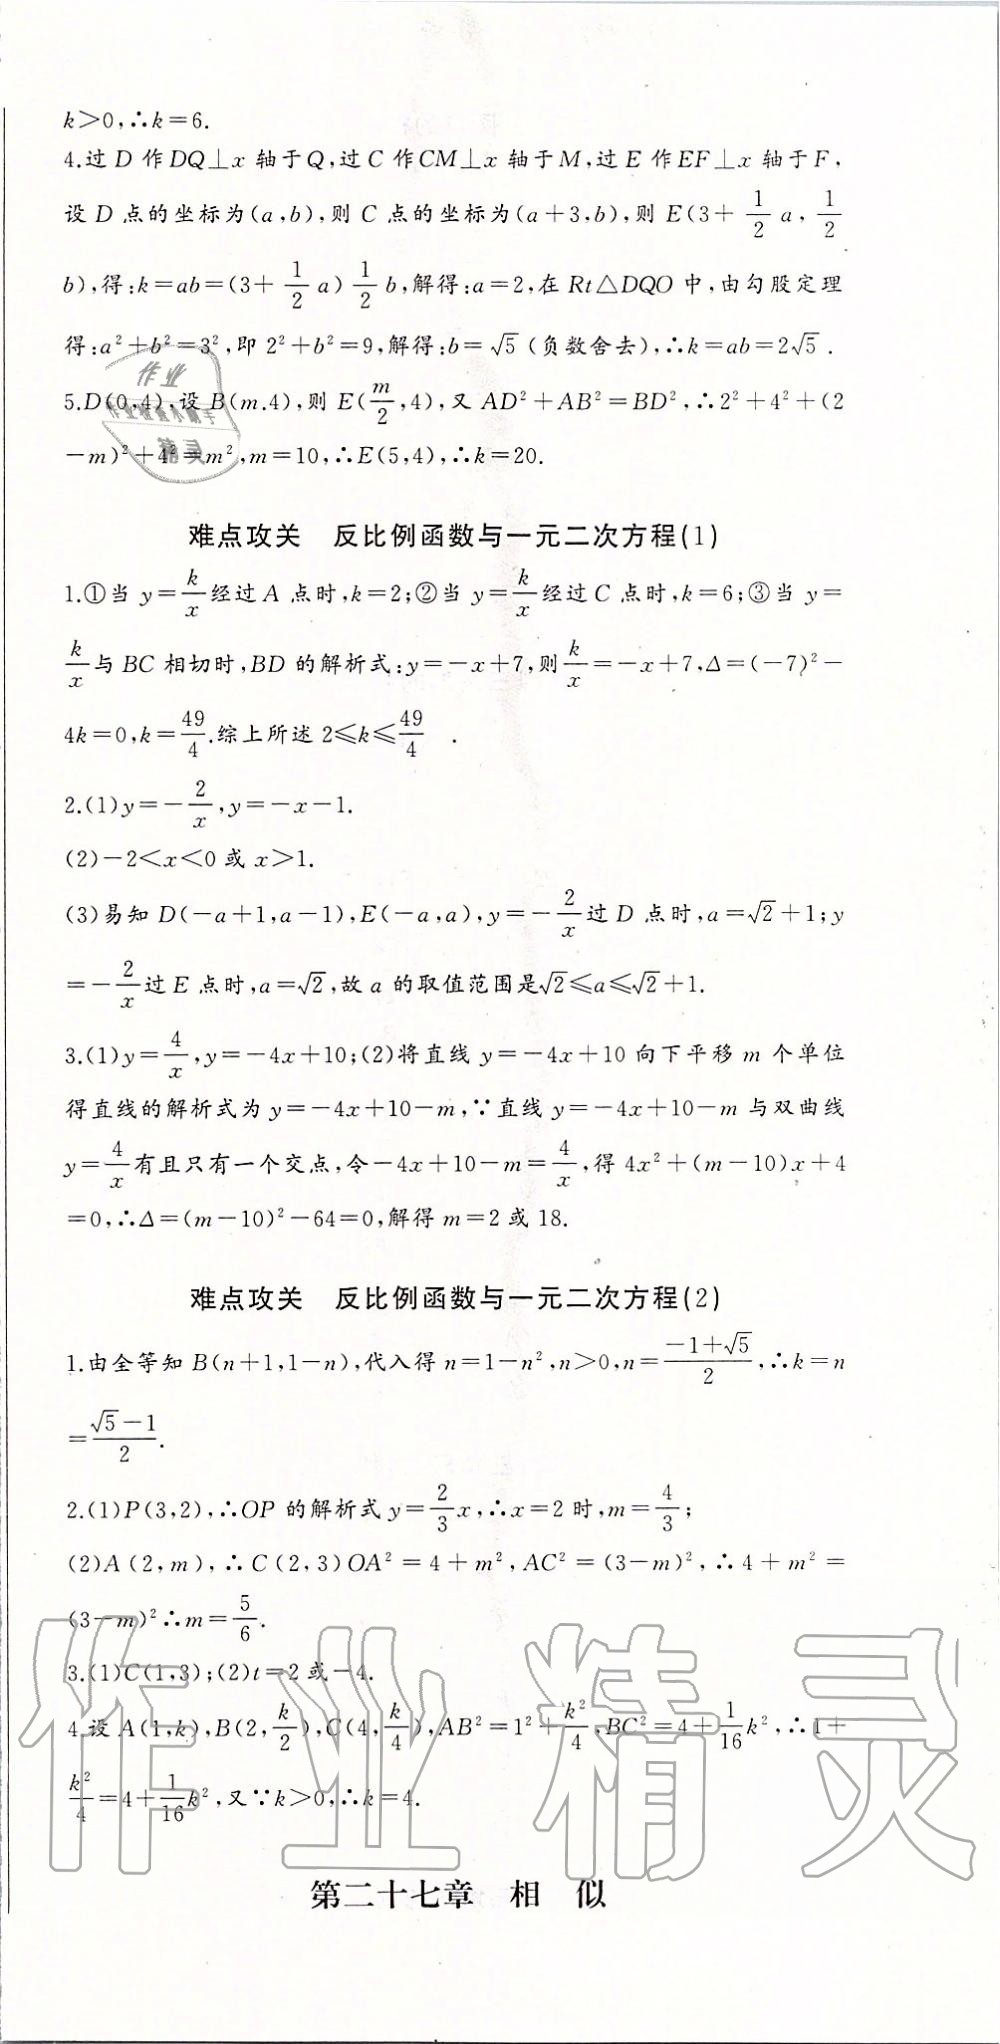 k＞0,∴k＝6.
4.过 D 作 DQ⊥x 轴于 Q,过 C 作 CM⊥x 轴于 M,过 E 作 EF⊥x 轴于 F,
设 D 点的坐标为(a,b),则 C 点的坐标为(a＋3,b),则 E(3＋1/2 a, 1/2
b),得:k＝ab＝(3＋1/2 a) 1/2 b,解得:a＝2,在 Rt△DQO 中,由勾股定理
得:a²＋b²＝3²,即 2²＋b²＝9,解得:b＝√5 (负数舍去),∴k＝ab＝2√5 .
5.D(0,4),设 B(m.4),则 E(m/2,4),又 AD²＋AB²＝BD²,∴2²＋4²＋(2
－m)²＋4²＝m²,m＝10,∴E(5,4),∴k＝20.
难点攻关 反比例函数与一元二次方程(1)
1.①当 y＝k/x 经过 A 点时,k＝2;②当 y＝k/x 经过 C 点时,k＝6;③当 y＝
k/x 与 BC 相切时,BD 的解析式:y＝－x＋7,则 k/x＝－x＋7,Δ＝(－7)²－
4k＝0,k＝49/4.综上所述 2≤k≤49/4 .
2.(1)y＝－2/x,y＝－x－1.
(2)－2＜x＜0 或 x＞1.
(3)易知 D(－a＋1,a－1),E(－a,a),y＝－2/x 过 D 点时,a＝√2＋1;y
＝－2/x 过 E 点时,a＝√2,故 a 的取值范围是√2≤a≤√2＋1.
3.(1)y＝4/x,y＝－4x＋10;(2)将直线 y＝－4x＋10 向下平移 m 个单位
得直线的解析式为 y＝－4x＋10－m,∵直线 y＝－4x＋10－m 与双曲线
y＝4/x 有且只有一个交点,令－4x＋10－m＝4/x,得 4x²＋(m－10)x＋4
＝0,∴Δ＝(m－10)²－64＝0,解得 m＝2 或 18.
难点攻关 反比例函数与一元二次方程(2)
1.由全等知 B(n＋1,1－n),代入得 n＝1－n²,n＞0,n＝(－1＋√5)/2,∴k＝n
＝(√5－1)/2.
2.(1)P(3,2),∴OP 的解析式 y＝2/3 x,∴x＝2 时,m＝4/3;
(2)A(2,m),∴C(2,3)OA²＝4＋m²,AC²＝(3－m)²,∴4＋m²＝
(3－m)²∴m＝5/6.
3.(1)C(1,3);(2)t＝2 或－4.
4.设 A(1,k),B(2,k/2),C(4,k/4),AB²＝1²＋k²/4,BC²＝4＋1/16 k²,∴1＋
k²/4＝4＋1/16 k²,又∵k＞0,∴k＝4.
第二十七章 相 似
作业精灵
作业